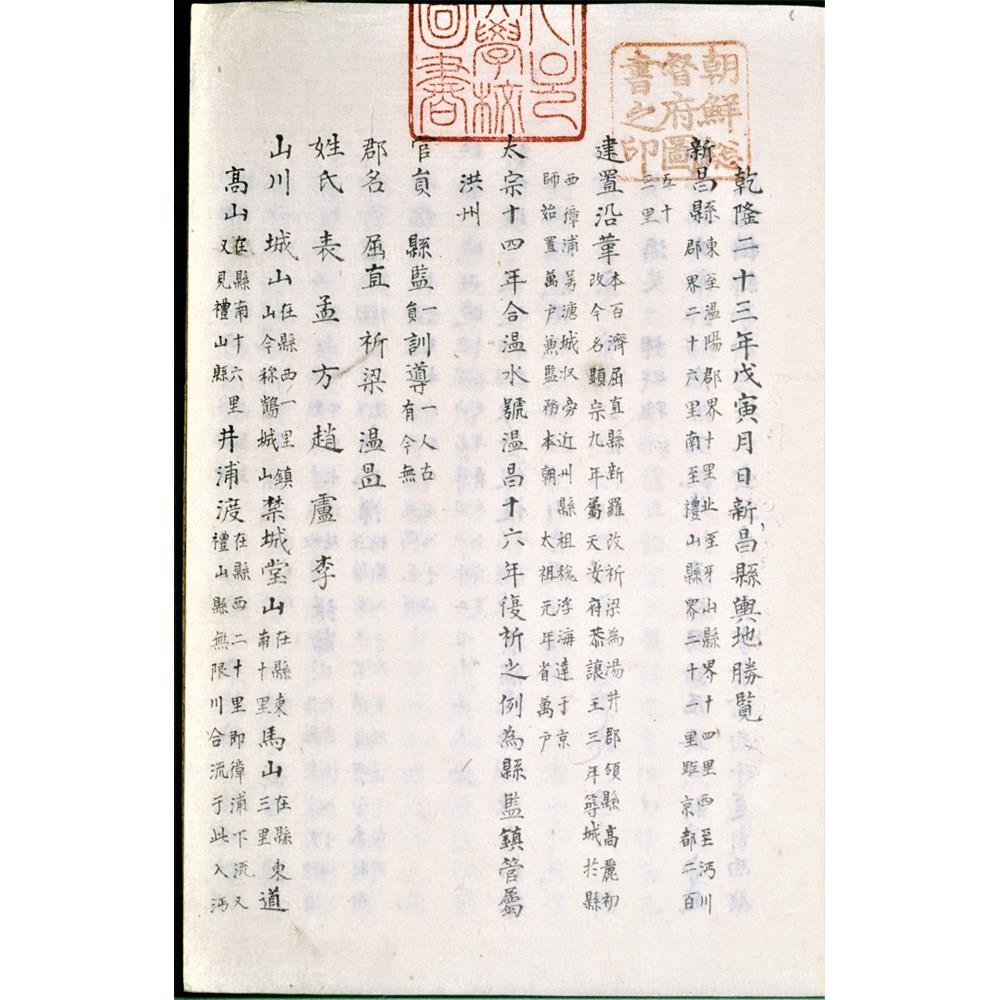 乾隆二十三年戊寅月日新昌縣輿地勝覽
新昌縣東至溫陽郡界十里北至牙山縣界十四里西至沔川郡界二十六里南至禮山縣界二十里距京都二百
五十三里
建置沿革本百濟屈直縣新羅改祈梁為湯井郡領縣高麗初改今名顯宗九年屬天安府恭讓王三年等城於縣
西獐浦号溏城収旁近州縣租税浮海達于京師始置萬户兼監務本朝太祖元年省萬户
太宗十四年合温水號温昌十六年復祈之例為縣監鎮管屬
洪州
官貟縣監一貟訓導一人古有今無
郡名屈直祈梁温昌
姓氏表孟方趙盧李
山川城山在縣西一里鎮山今称鶴城山禁城堂山在縣東南十里馬山在縣東道三里
高山在縣南十六里又見禮山縣井浦渡在縣西二十里即獐浦下流又禮山縣無限川合流于此入沔
朝鮮総督府圖書之印
圖書